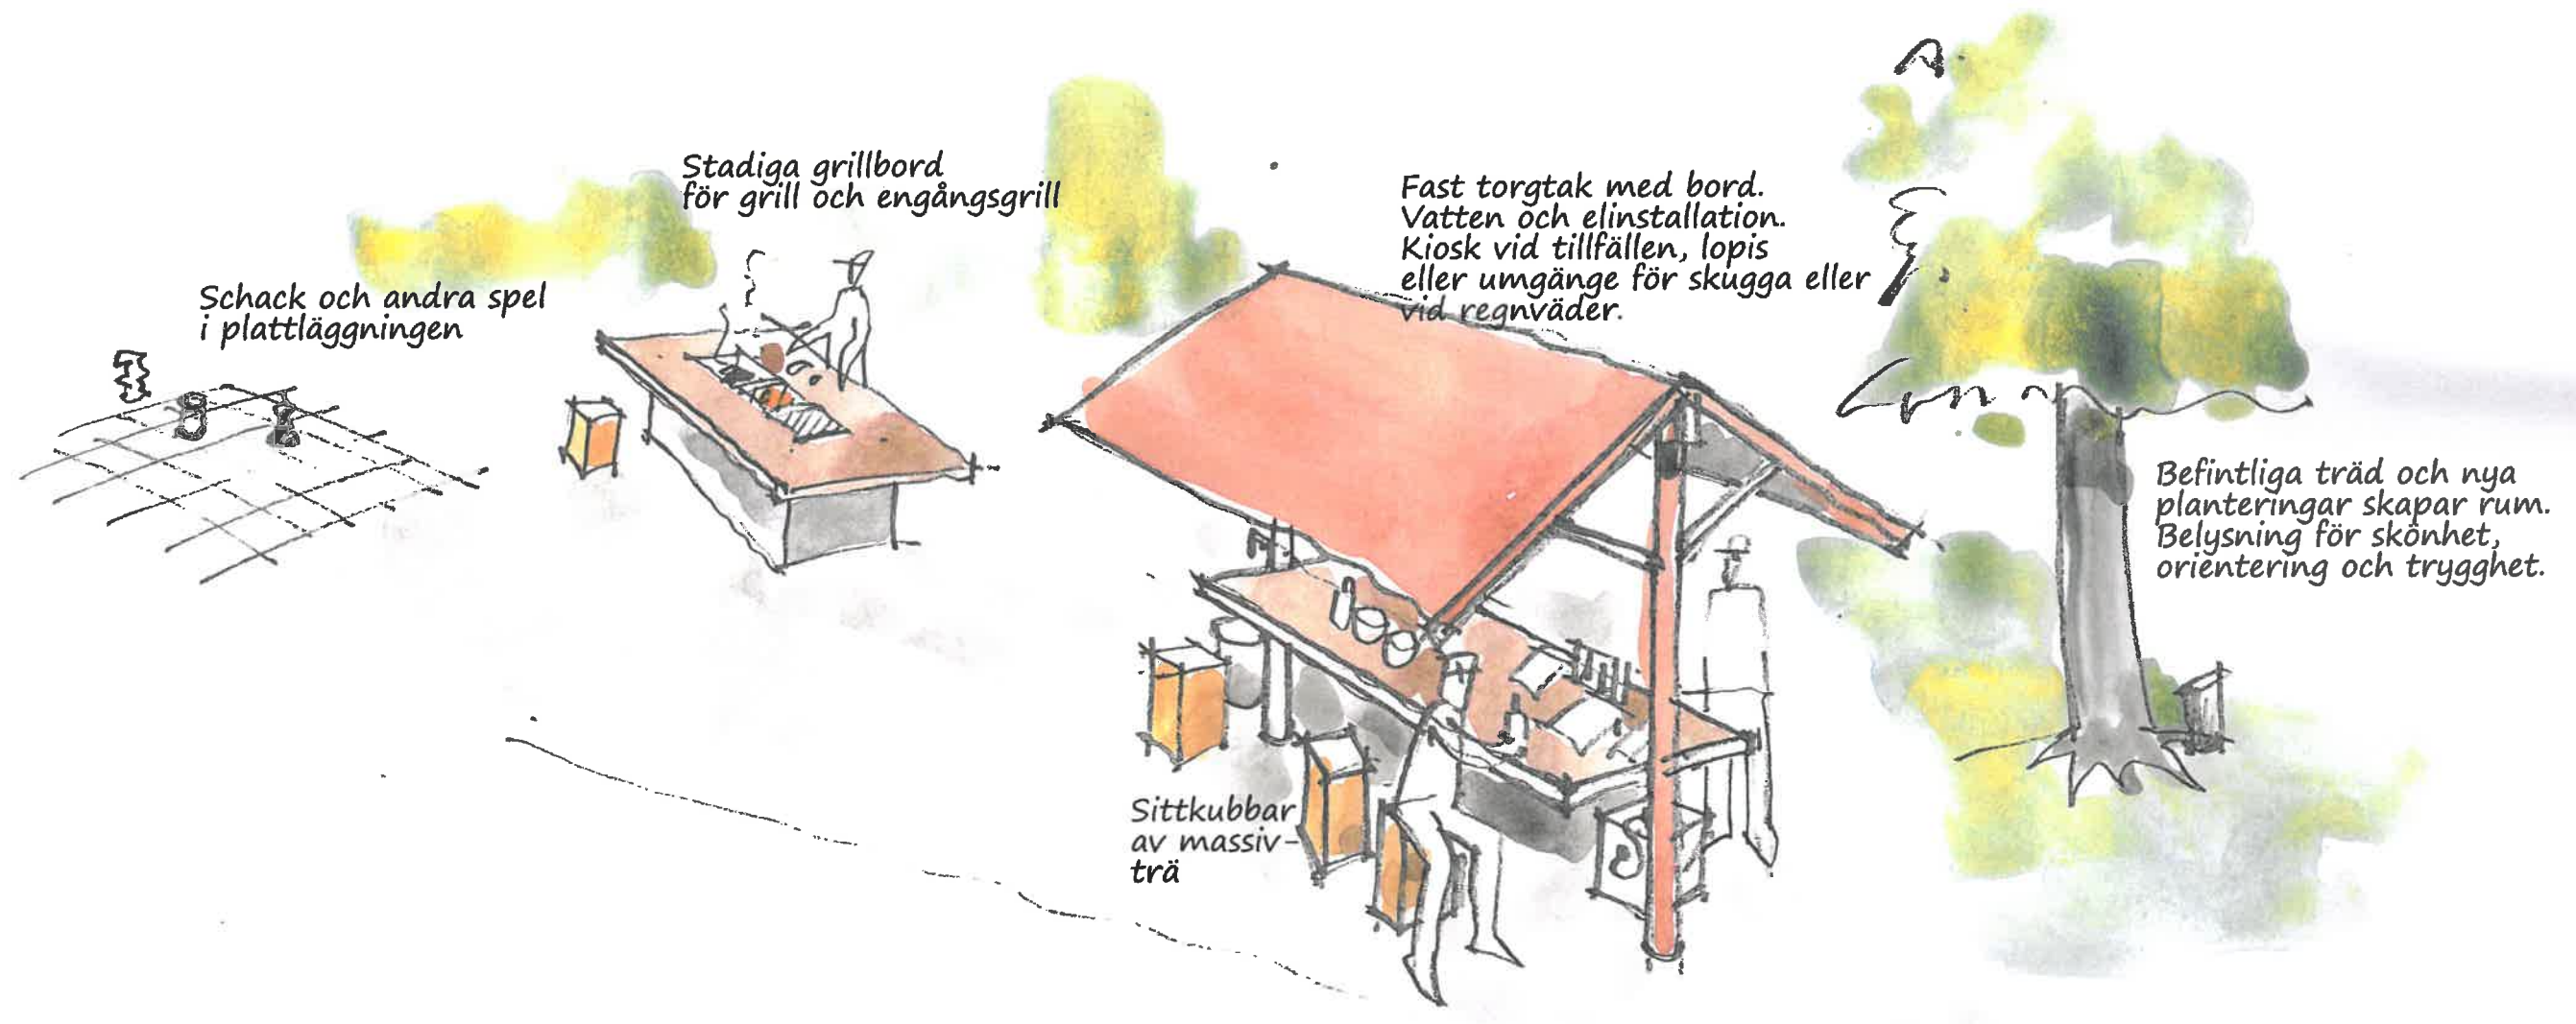 Schack och andra spel
i plattläggningen
Stadiga grillbord
för grill och engångsgrill
Fast torgtak med bord.
Vatten och elinstallation.
Kiosk vid tillfällen, lopis
eller umgänge för skugga eller
vid regnväder.
Befintliga träd och nya
planteringar skapar rum.
Belysning för skönhet,
orientering och trygghet.
Sittkubbar
av massiv-
trä